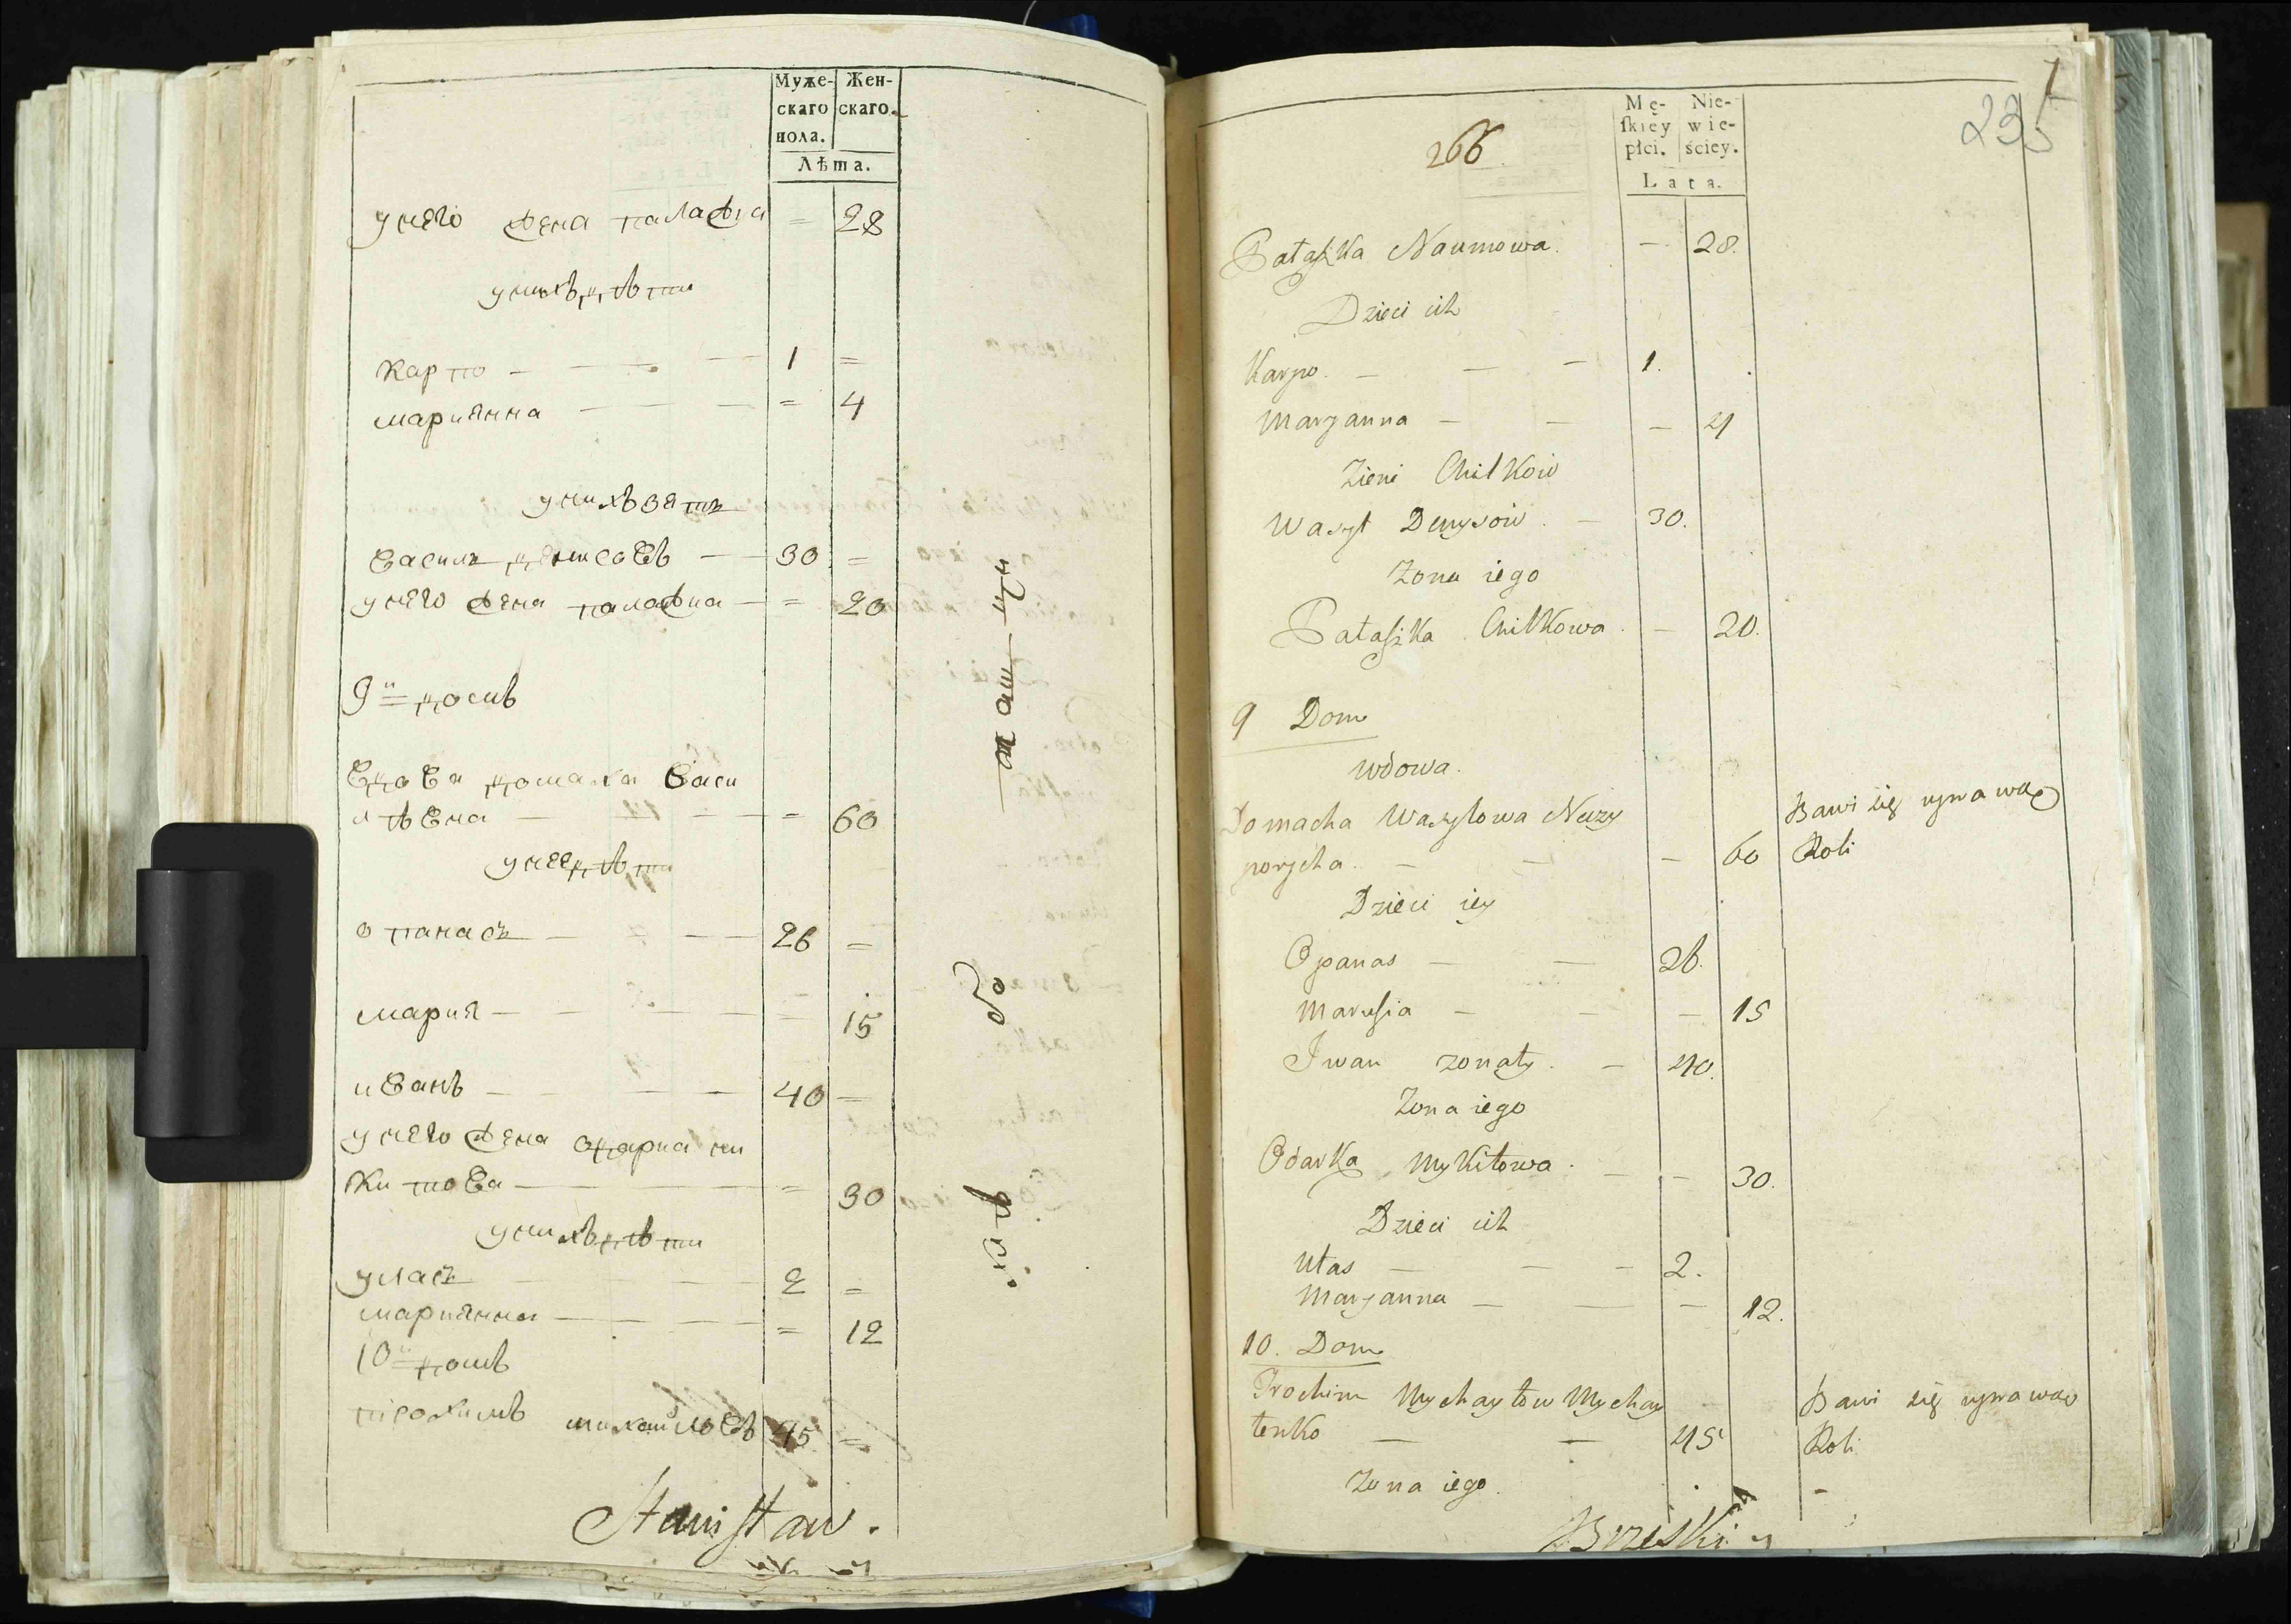 Муже-
скаго
пола.
Жен-
скаго.
Лѣта.
у него жена палажка = 28
у нихъ дѣти
карпо — — — 1 =
марианна — — — = 4
у нихъ зять
василь денисовъ — 30 =
у него жена палажка — = 20
9й домъ
вдова домаха васи
лѣвна — — — = 60
у нее дѣти
опанасъ — — — 26 =
мария — — — = 15
иванъ — — — 40 =
у него жена одарка ни
китова — — = 30
у нихъ дѣти
уласъ — — 2 =
марианна — — — = 12
10й домъ
трохимъ михайловъ 45 =
Stanisław.
266.
Mę-
skiey
płci.
Nie-
wie-
ściey.
Lata.
235
Pałaszka Naumowa. — 28.
Dzieci ich
Karpo. — — — 1.
Maryanna — — — 4
Zięni Chilków
Wasyl Denysów. — 30.
Zona iego
Pałaszka Chilkowa. — 20.
9 Dom
Wdowa.
Domacha Wasylowa Neczy
porycha. — — — 60
Bawi się uprawą
Roli
Dzieci iey
Opanas — — 26.
Marusia — — — 15
Iwan zonaty. — 40.
Zona iego
Odarka Mykitowa. — — 30.
Dzieci ich
Ułas — — — 2.
Maryanna — — — 12.
10. Dom
Trochim Mychayłow Mychay
lenko — — 45
Bawi się uprawą
Roli
Zona iego.
Brzeski